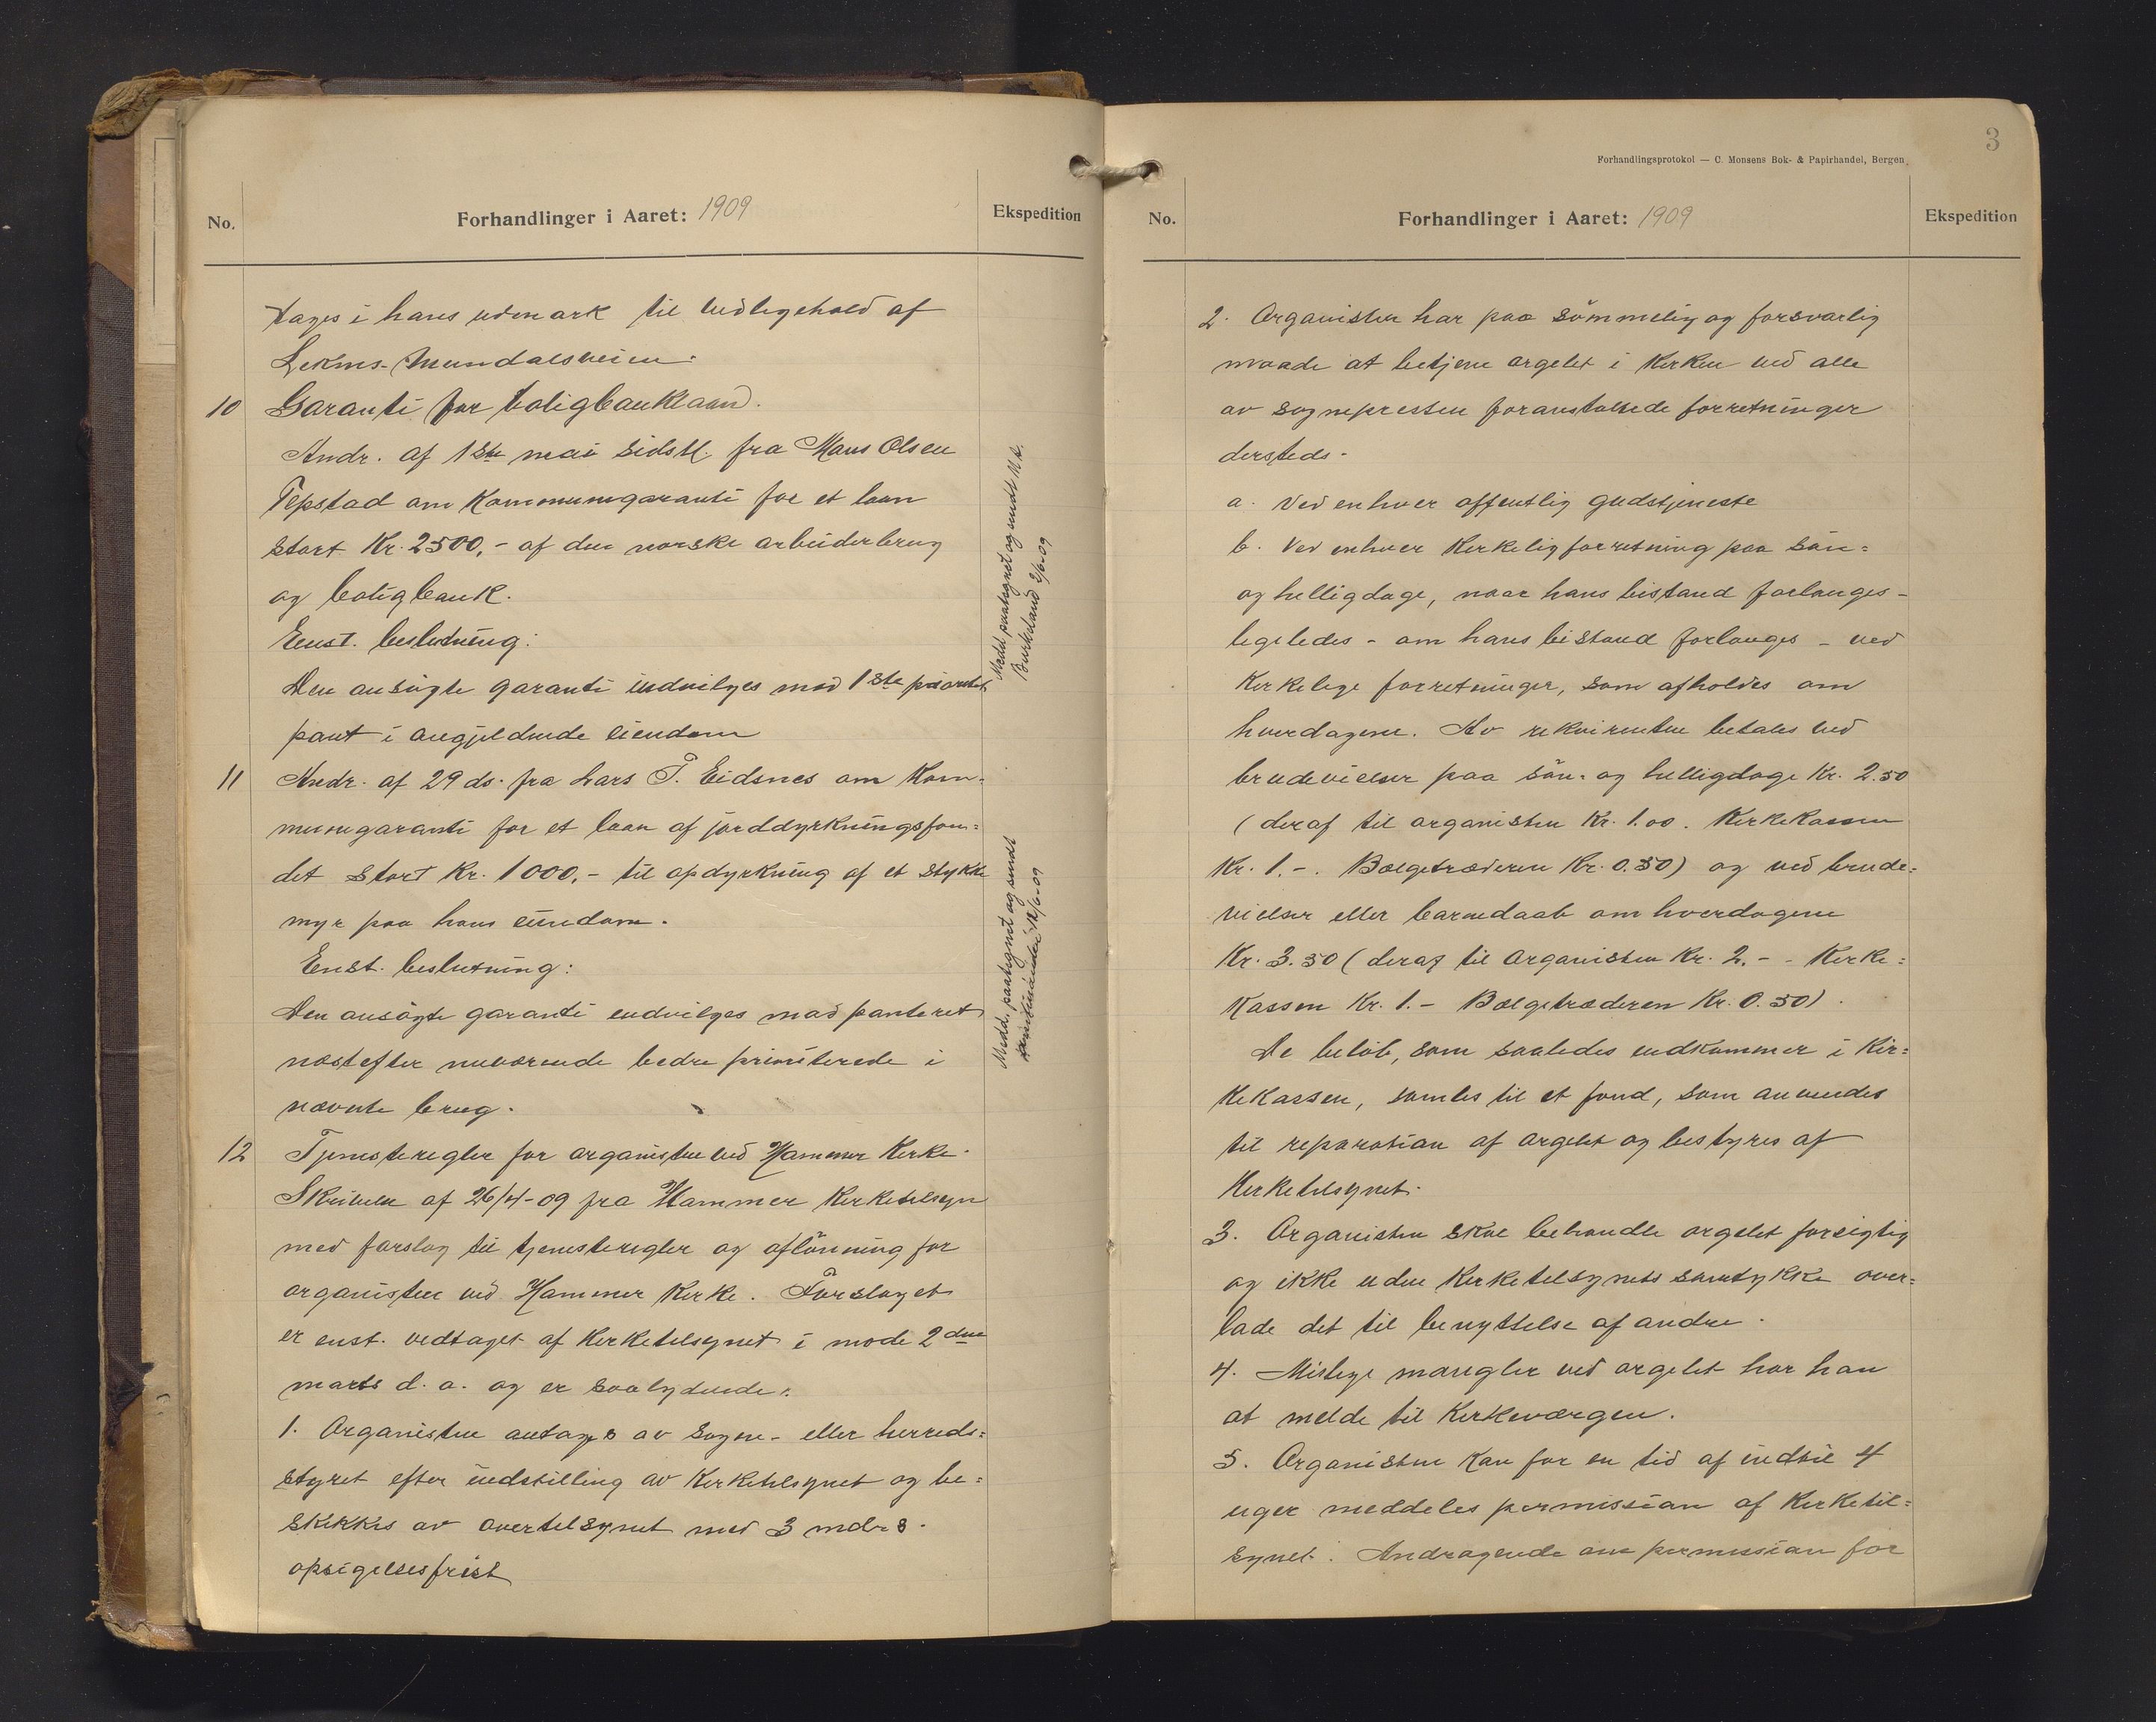 No.
Forhandlinger i Aaret: 1909
Ekspedition
tages i hans udmark til vedligehold af
Leknes-Mundalsveien.
10 Garanti for boligbanklaan.
Andr. af 1ste mai sidstl. fra Mons Olsen
Tepstad om Kommunegaranti for et laan
stort Kr. 2500,- af den norske arbeiderbrug
og boligbank.
Enst. beslutning:
Den ansøgte garanti indvilges mod 1ste prioritets
pant i angjeldende eiendom
Medd. paategnet og sendt M.
Burkeland 2/6-09
11 Andr. af 29 ds. fra Lars T. Eidsnes om Kom-
munegaranti for et laan af jorddyrkningsfon=
det stort Kr. 1000,- til opdyrkning af et stykke
myr paa hans eiendom.
Enst. beslutning:
Den ansøgte garanti indvilges mod panteret
næstefter nuværende bedre prioriterede i
nævnte brug.
Medd. paategnet og sendt
12/6-09
12 Tjenesteregler for organisten ved Hammer Kirke.
Skrivelse af 26/4-09 fra Hammer Kirketilsyn
med forslag til tjenesteregler og aflönning for
organisten ved Hammer Kirke. Forslaget
er enst. vedtaget af Kirketilsynet i mode 2den
marts d. a. og er saalydende:
1. Organisten antages av sogne- eller herreds=
styret efter indstilling av Kirketilsynet og be=
skikkes av overtilsynet med 3 mdrs.
opsigelsesfrist
3
Forhandlingsprotokol — C. Monsens Bok- & Papirhandel, Bergen
No.
Forhandlinger i Aaret: 1909
Ekspedition
2. Organisten har paa sömmelig og forsvarlig
maade at betjene orgelet i Kirken ved alle
av sognepresten foranstaltede forretninger
dersteds.
a. Ved enhver offentlig gudstjeneste
b. Ved enhver Kirkelig forretning paa sön=
og helligdage, naar hans bistand forlanges -
ligeledes - om hans bistand forlanges - ved
Kirkelige forretninger, som afholdes om
hverdagene. Av rekvirenten betales ved
brudevielser paa sön- og helligdage Kr. 2.50
(deraf til organisten Kr. 1.00. Kirkekassen
Kr. 1.-. Bælgetræderen Kr. 0.50) og ved brude=
vielser eller barnedaab om hverdagene
Kr. 3.50 (deraf til organisten Kr. 2.- - Kirke=
Kassen Kr. 1.- Bælgetræderen Kr. 0.50).
De beløb, som saaledes indkommer i Kir=
keKassen, samles til et fond, som anvendes
til reparation af orgelet og bestyres af
Kirketilsynet.
3. Organisten skal behandle orgelet forsigtig
og ikke uden Kirketilsynets samtykke over=
lade det til benyttelse af andre.
4. Mulige mangler ved orgelet har han
at melde til Kirkeværgen.
5. Organisten kan for en tid af indtil 4
uger meddeles permission af Kirketil=
synet. Andragende om permission for